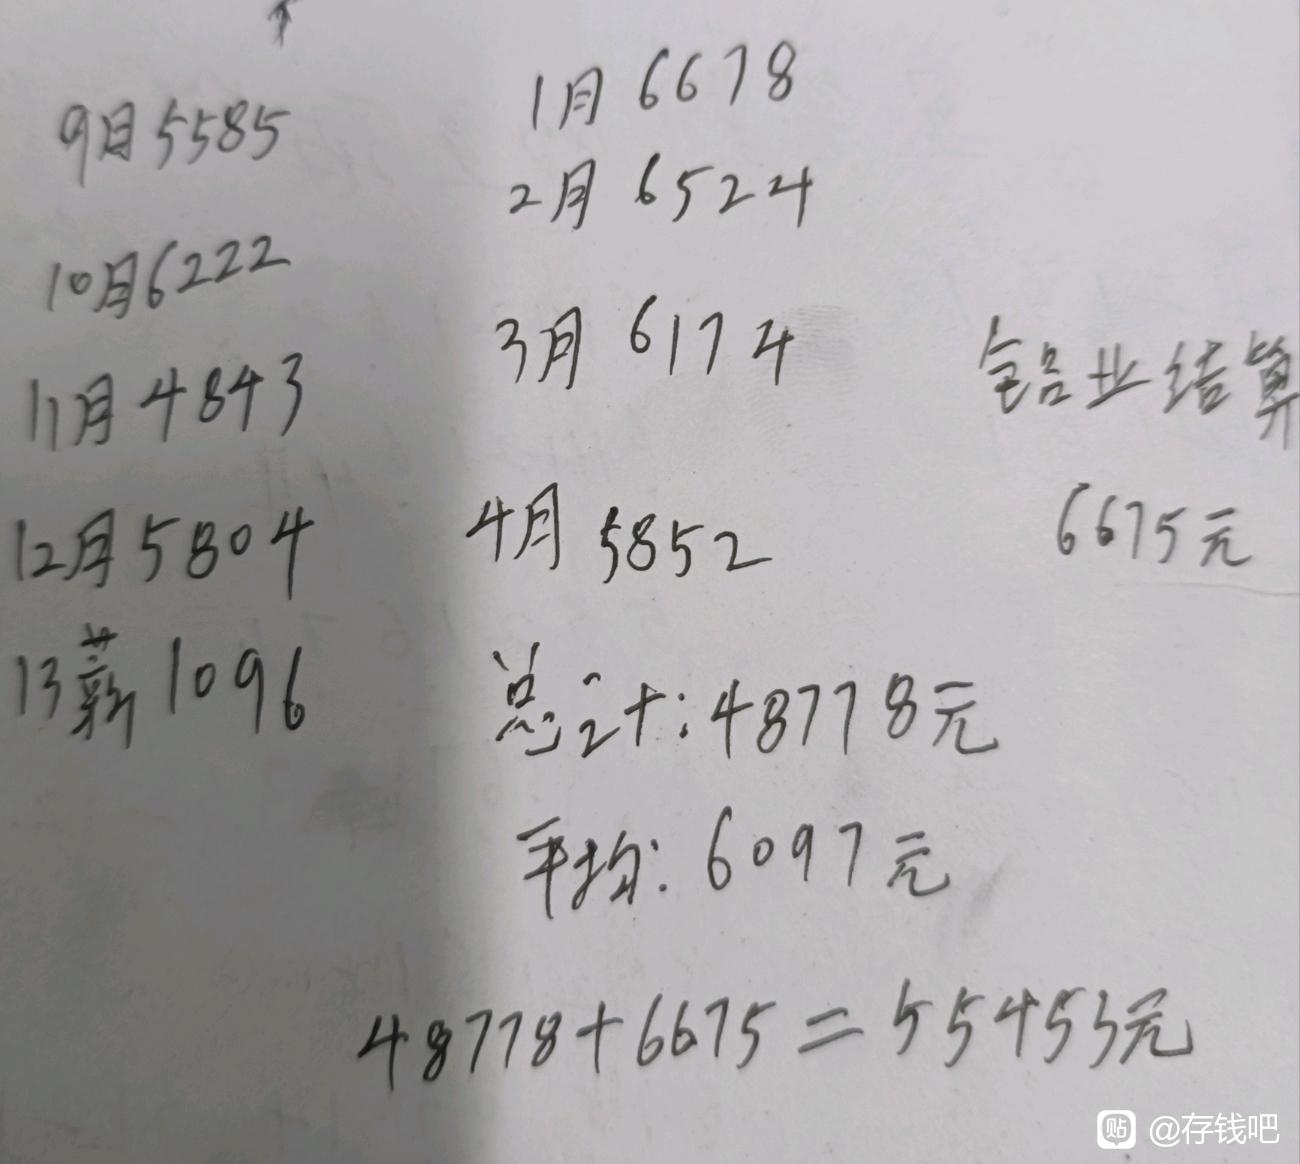 9月5585
10月6222
11月4843
12月5804
13薪1096
1月 6678
2月 6524
3月 6174
4月 5852
总计:48778元
平均:6097元
铝业结算
6675元
48778+6675=55453元
贴 @存钱吧